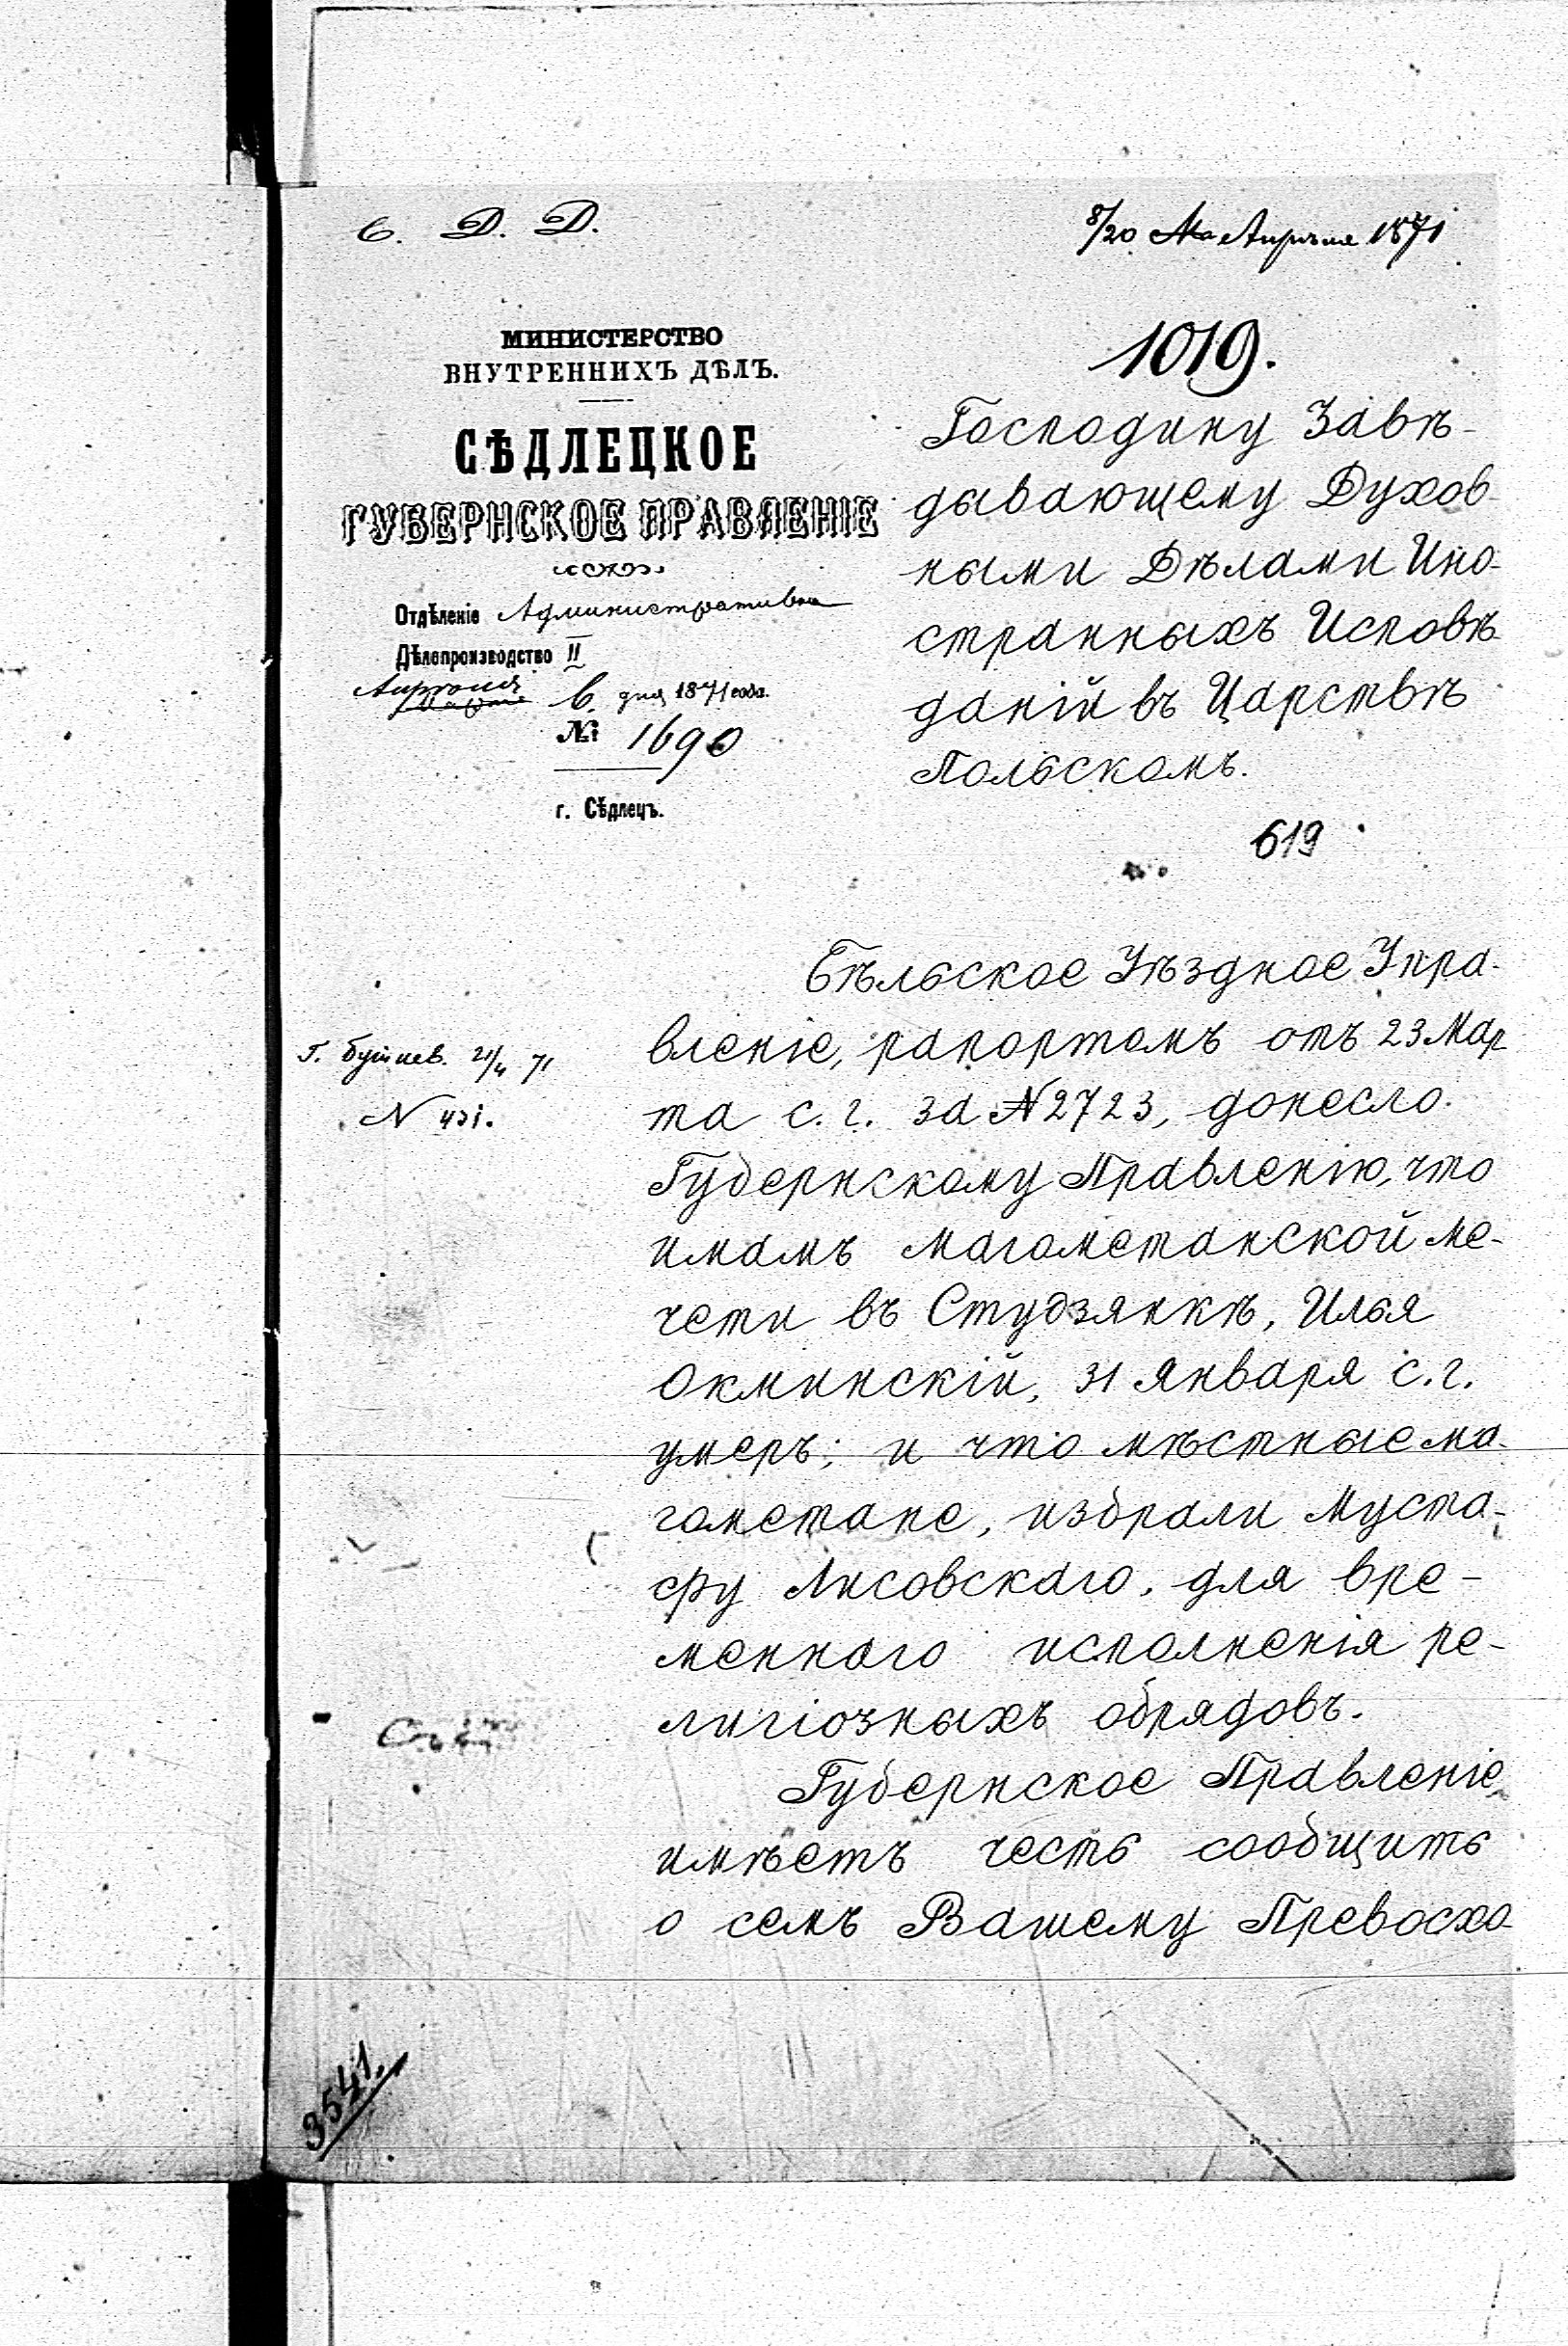 С. Д. Д.
8/20 Ма Апрѣля 1871
МИНИСТЕРСТВО
ВНУТРЕННИХЪ ДѢЛЪ.
СѢДЛЕЦКОЕ
ГУБЕРНСКОЕ ПРАВЛЕНІЕ
Отдѣленіе Административн
Дѣлопроизводство II
Апрѣля Марта 6. дня 1871 года.
№ 1690
г. Сѣдлецъ.
1019.
Господину Завѣ-
дывающему Духов-
ными Дѣлами Ино-
странныхъ Исповѣ-
даній въ Царствѣ
Польскомъ.
619
Бѣльское Уѣздное Упра-
вленіе, рапортомъ отъ 23 Мар
та с. г. за №2723, донесло
Губернскому Правленію, что
имамъ магометанской ме-
чети въ Студзянкѣ, Илья
Окминскій, 31 Января с. г.
умеръ; и что мѣстные ма-
гометане, избрали Муста-
фу Лисовскаго, для вре-
меннаго исполненія ре-
лигіозныхъ обрядовъ.
Губернское Правленіе
имѣетъ честь сообщить
о семъ Вашему Превосхо-
21/4 71
3541.